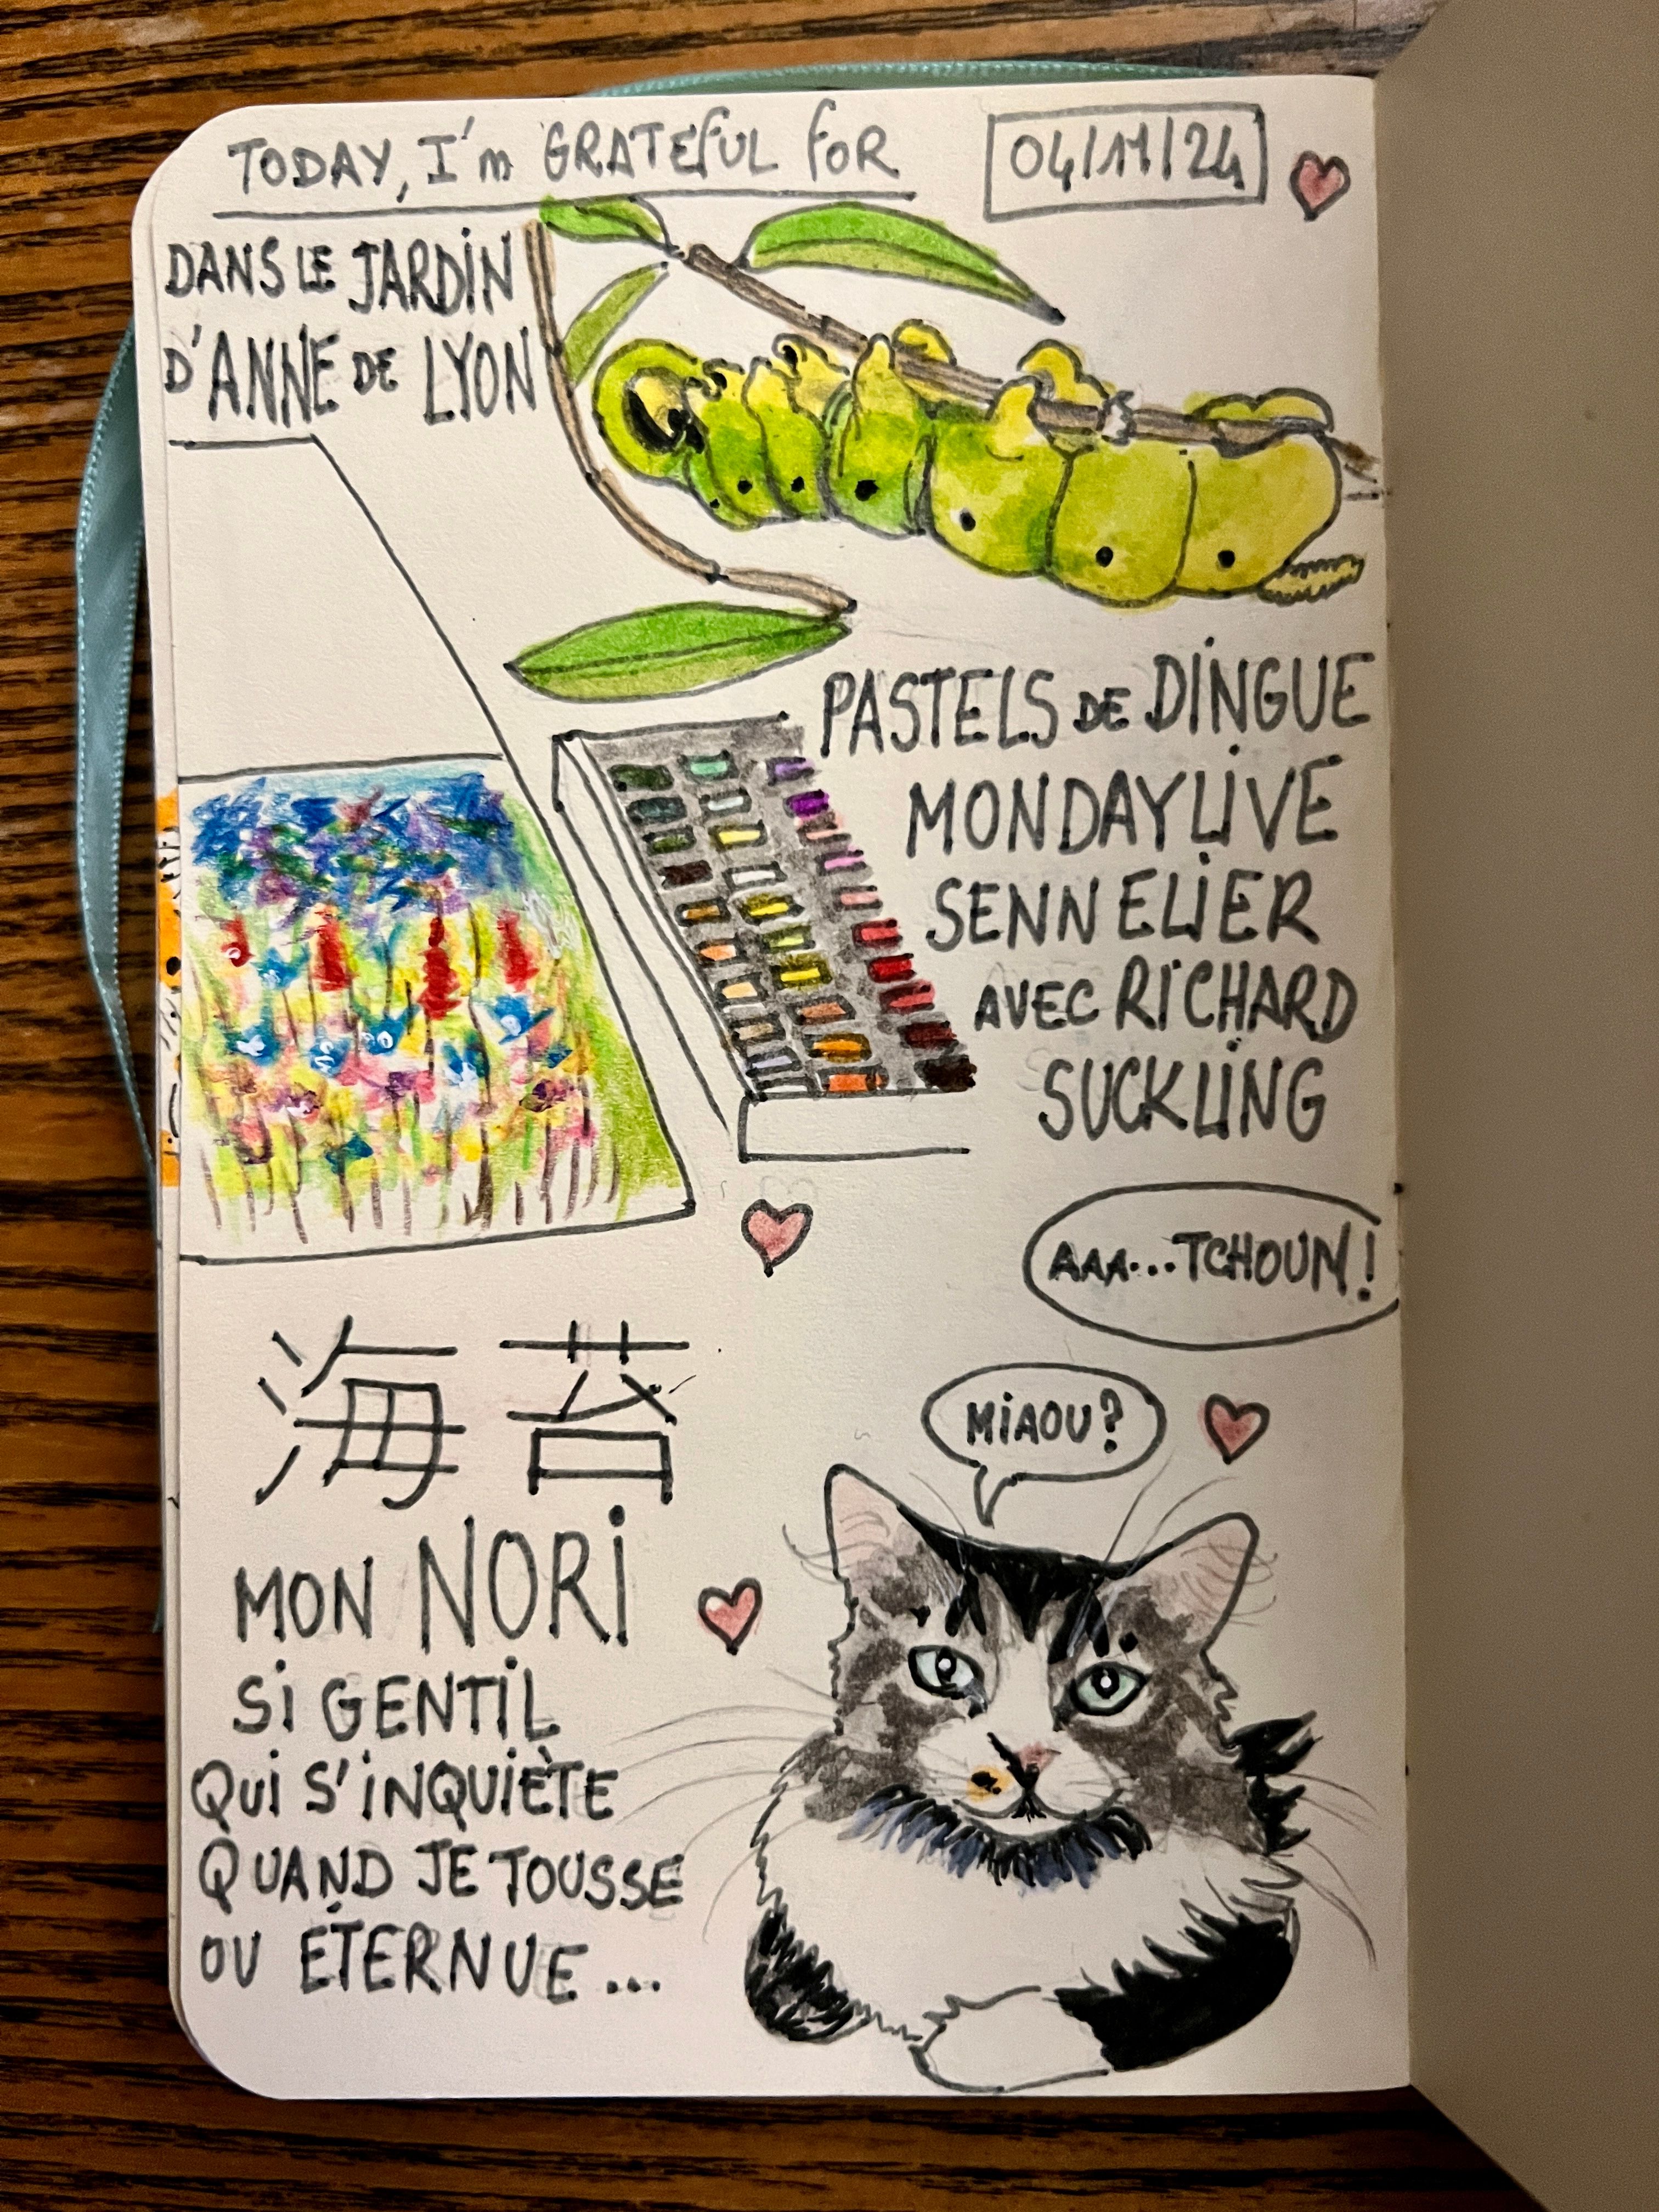 TODAY, I'm GRATEFUL FOR
04/11/24
DANS LE JARDIN
D'ANNE DE LYON
PASTELS DE DINGUE
MONDAY LIVE
SENNELIER
AVEC RICHARD
SUCKLING
AAA...TCHOUM!
MIAOU?
海苔
MON NORI
SI GENTIL
QUI S'INQUIÈTE
QUAND JE TOUSSE
OU ÉTERNUE...